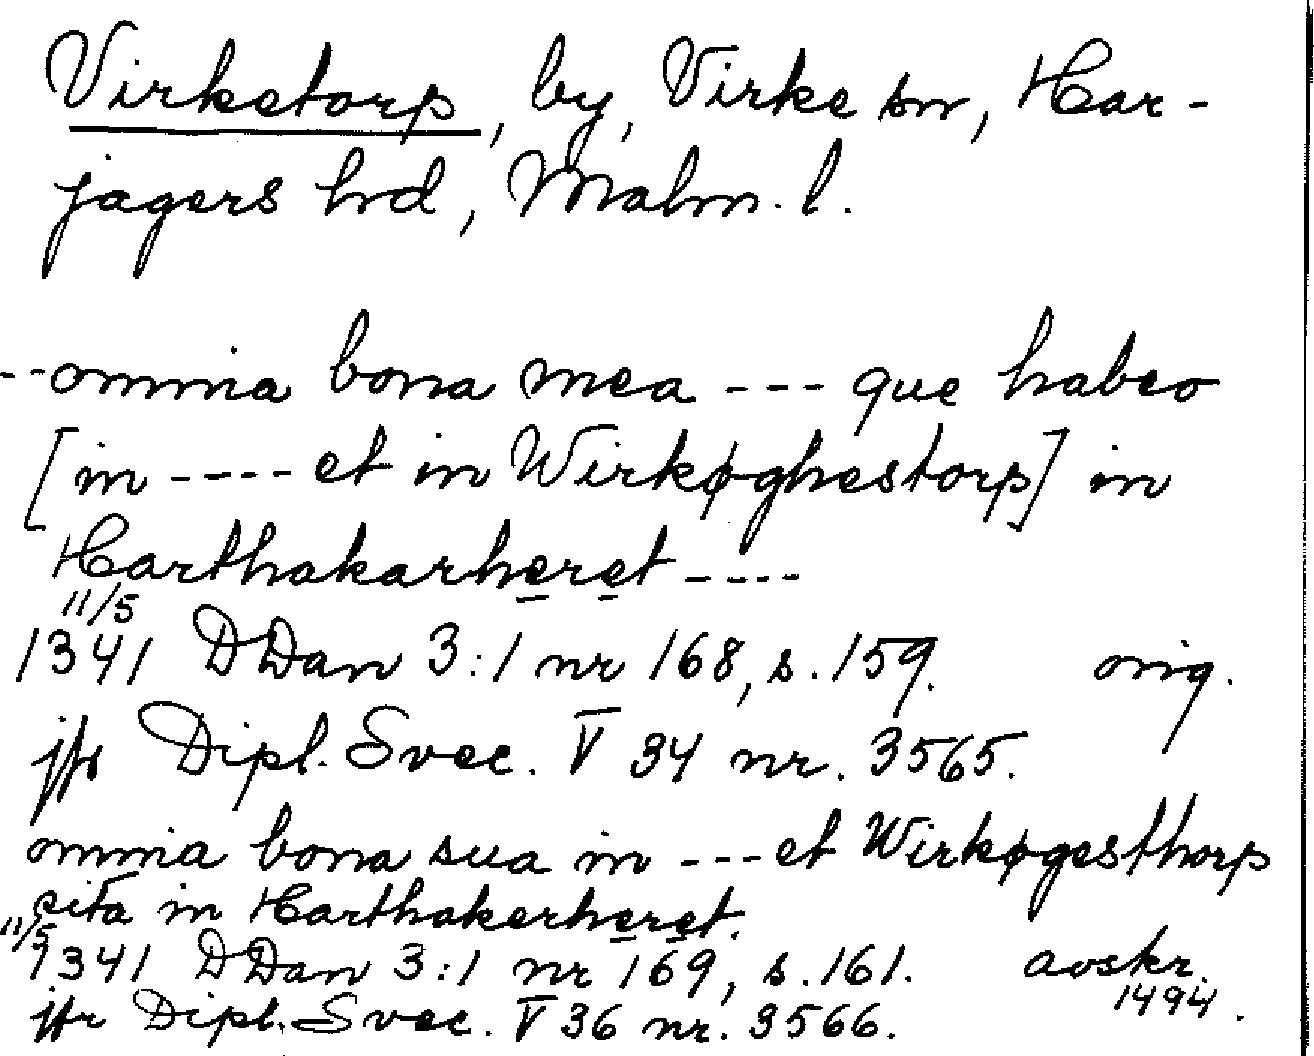 Virketorp, by, Virke sn, Har-
jagers hrd, Malm. l.
--omnia bona mea --- que habeo
[in ---- et in Wirkøghestorp] in
Harthakarheret ----
11/5
1341 DDan 3:1 nr 168, s. 159. orig.
jfr Dipl. Svec. V 34 nr. 3565.
omnia bona sua in --- et Wirkøgesthorp
sita in Harthakerheret.
11/5
1341 DDan 3:1 nr 169, s. 161. avskr.
1494.
jfr Dipl. Svec. V 36 nr. 3566.